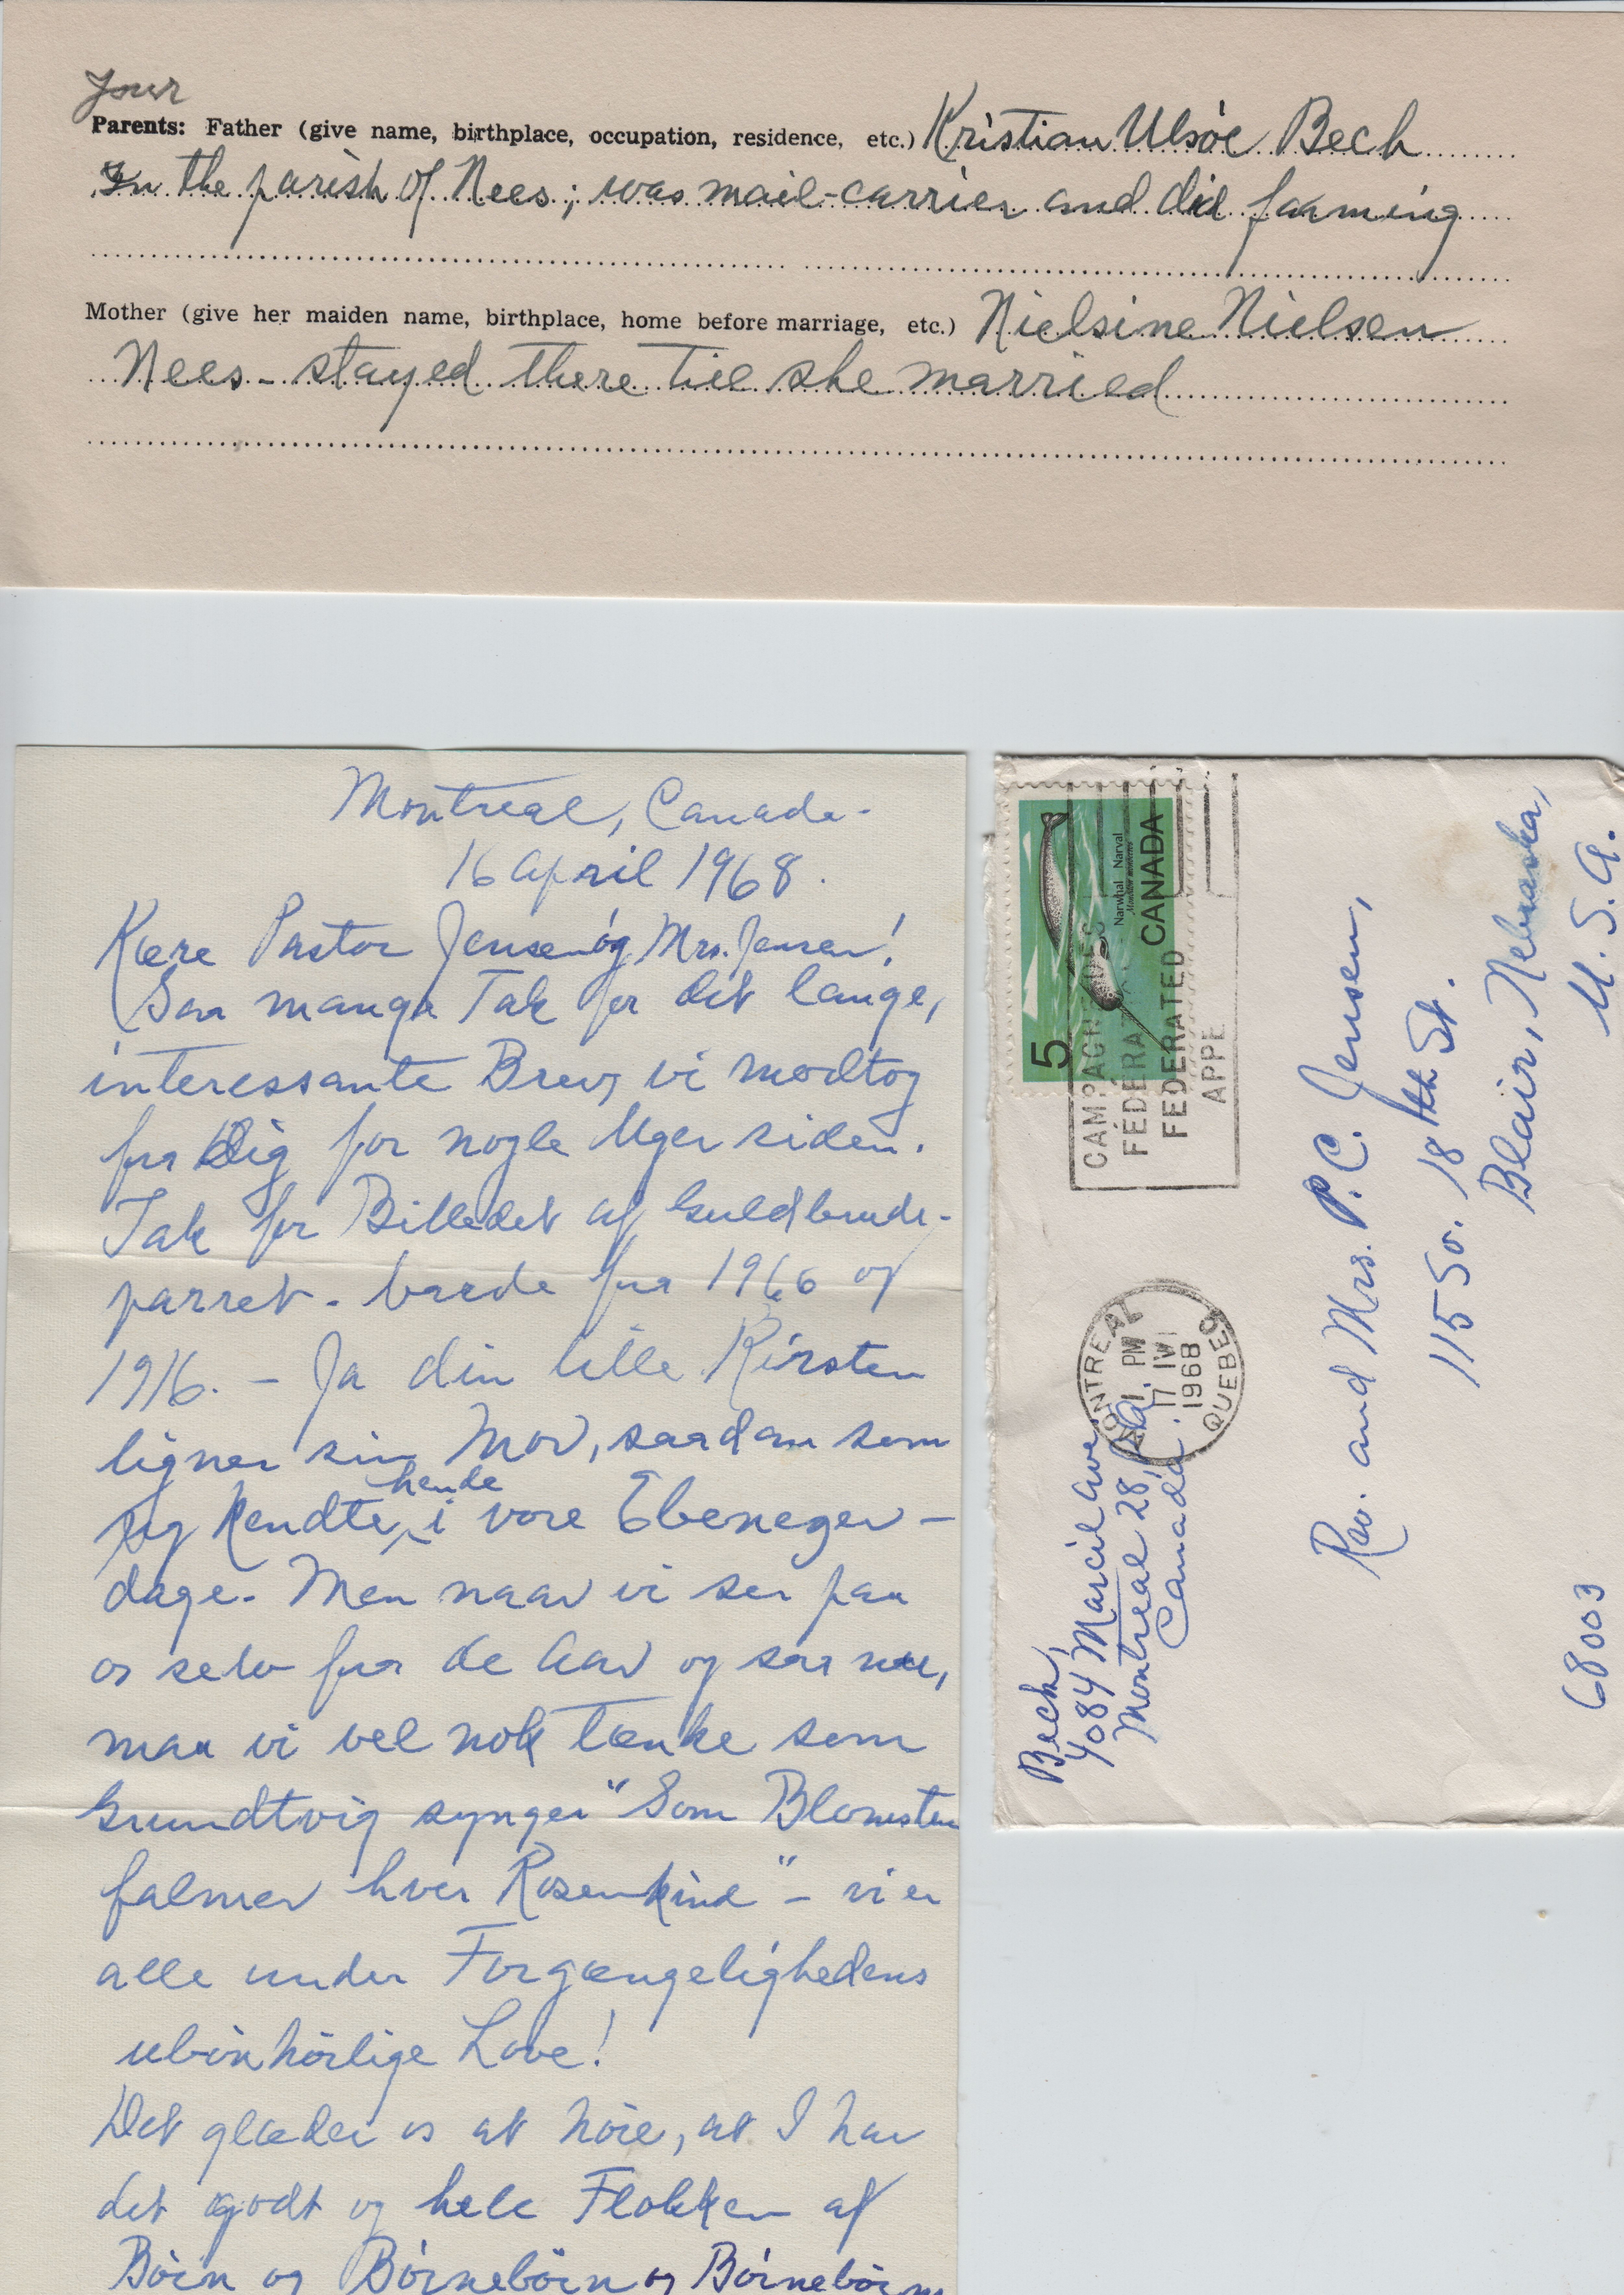 Your
Parents: Father (give name, birthplace, occupation, residence, etc.) Kristian Ulsöe Bech
In the parish of Nees; was mail-carrier and did farming
Mother (give her maiden name, birthplace, home before marriage, etc.) Nielsine Nielsen
Nees - stayed there till she married
Montreal, Canada.
16 April 1968.
Kære Pastor Jensen og Mrs. Jensen!
Saa mange Tak for det lange,
interessante Brev, vi modtog
fra Dig for nogle Uger siden.
Tak for Billedet af Guldbrude-
parret - baade fra 1966 og
1916. - Ja din lille Kirsten
ligner sin Mor, saadan som
jeg kendte hende i vore Ebenezer-
dage. Men naar vi ser paa
os selv fra de Aar og saa nu,
maa vi vel nok tænke som
Grundtvig synger "Som Blomsten
falmer hver Rosenkind" - vi er
alle under Forgængelighedens
ubönhörlige Love!
Det glæder os at höre, at I har
det godt og hele Flokken af
Börn og Börnebörn og Börnebörns
5
Narwhal Narval
CANADA
CAMPAGNE DES
FÉDÉRÉ
FEDERATED
APPE
MONTREAL
1 PM
17 IV
1968
QUEBEC
Bech,
4084 Marcil Ave.
Montreal 28, P.Q.
Canada.
Rev. and Mrs. P.C. Jensen,
115 So. 18th St.
Blair, Nebraska,
U.S.A.
68003